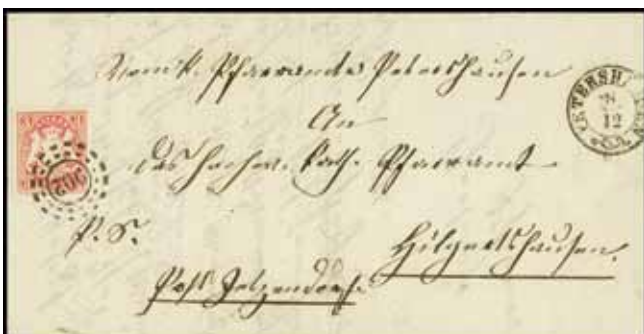 Pfarramte Petershausen
An
das hochw. kath. Pfarramt
P. S.
Hilgertshausen.
Post Jetzendorf.
PETERSH
28
12
702